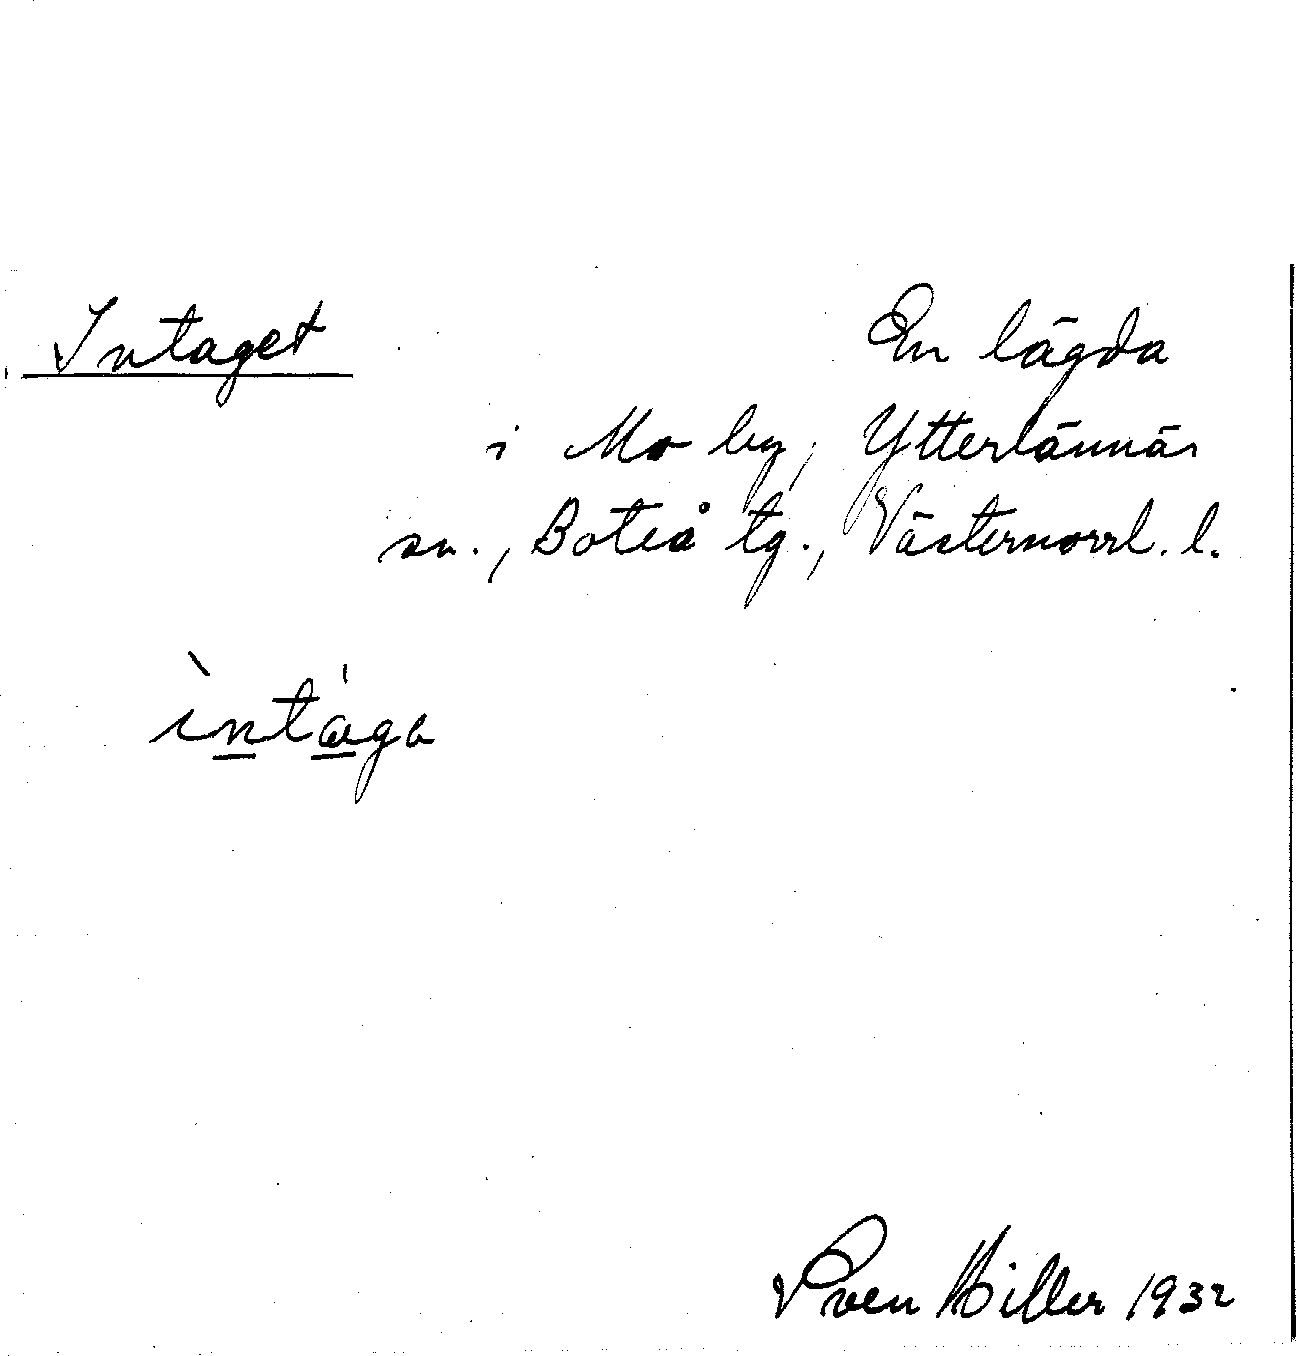 Intaget
En lägda
i Mo by, Ytterlännäs
sn., Boteå tg., Västernorrl. l.
ìntága
Sven Hiller 1932